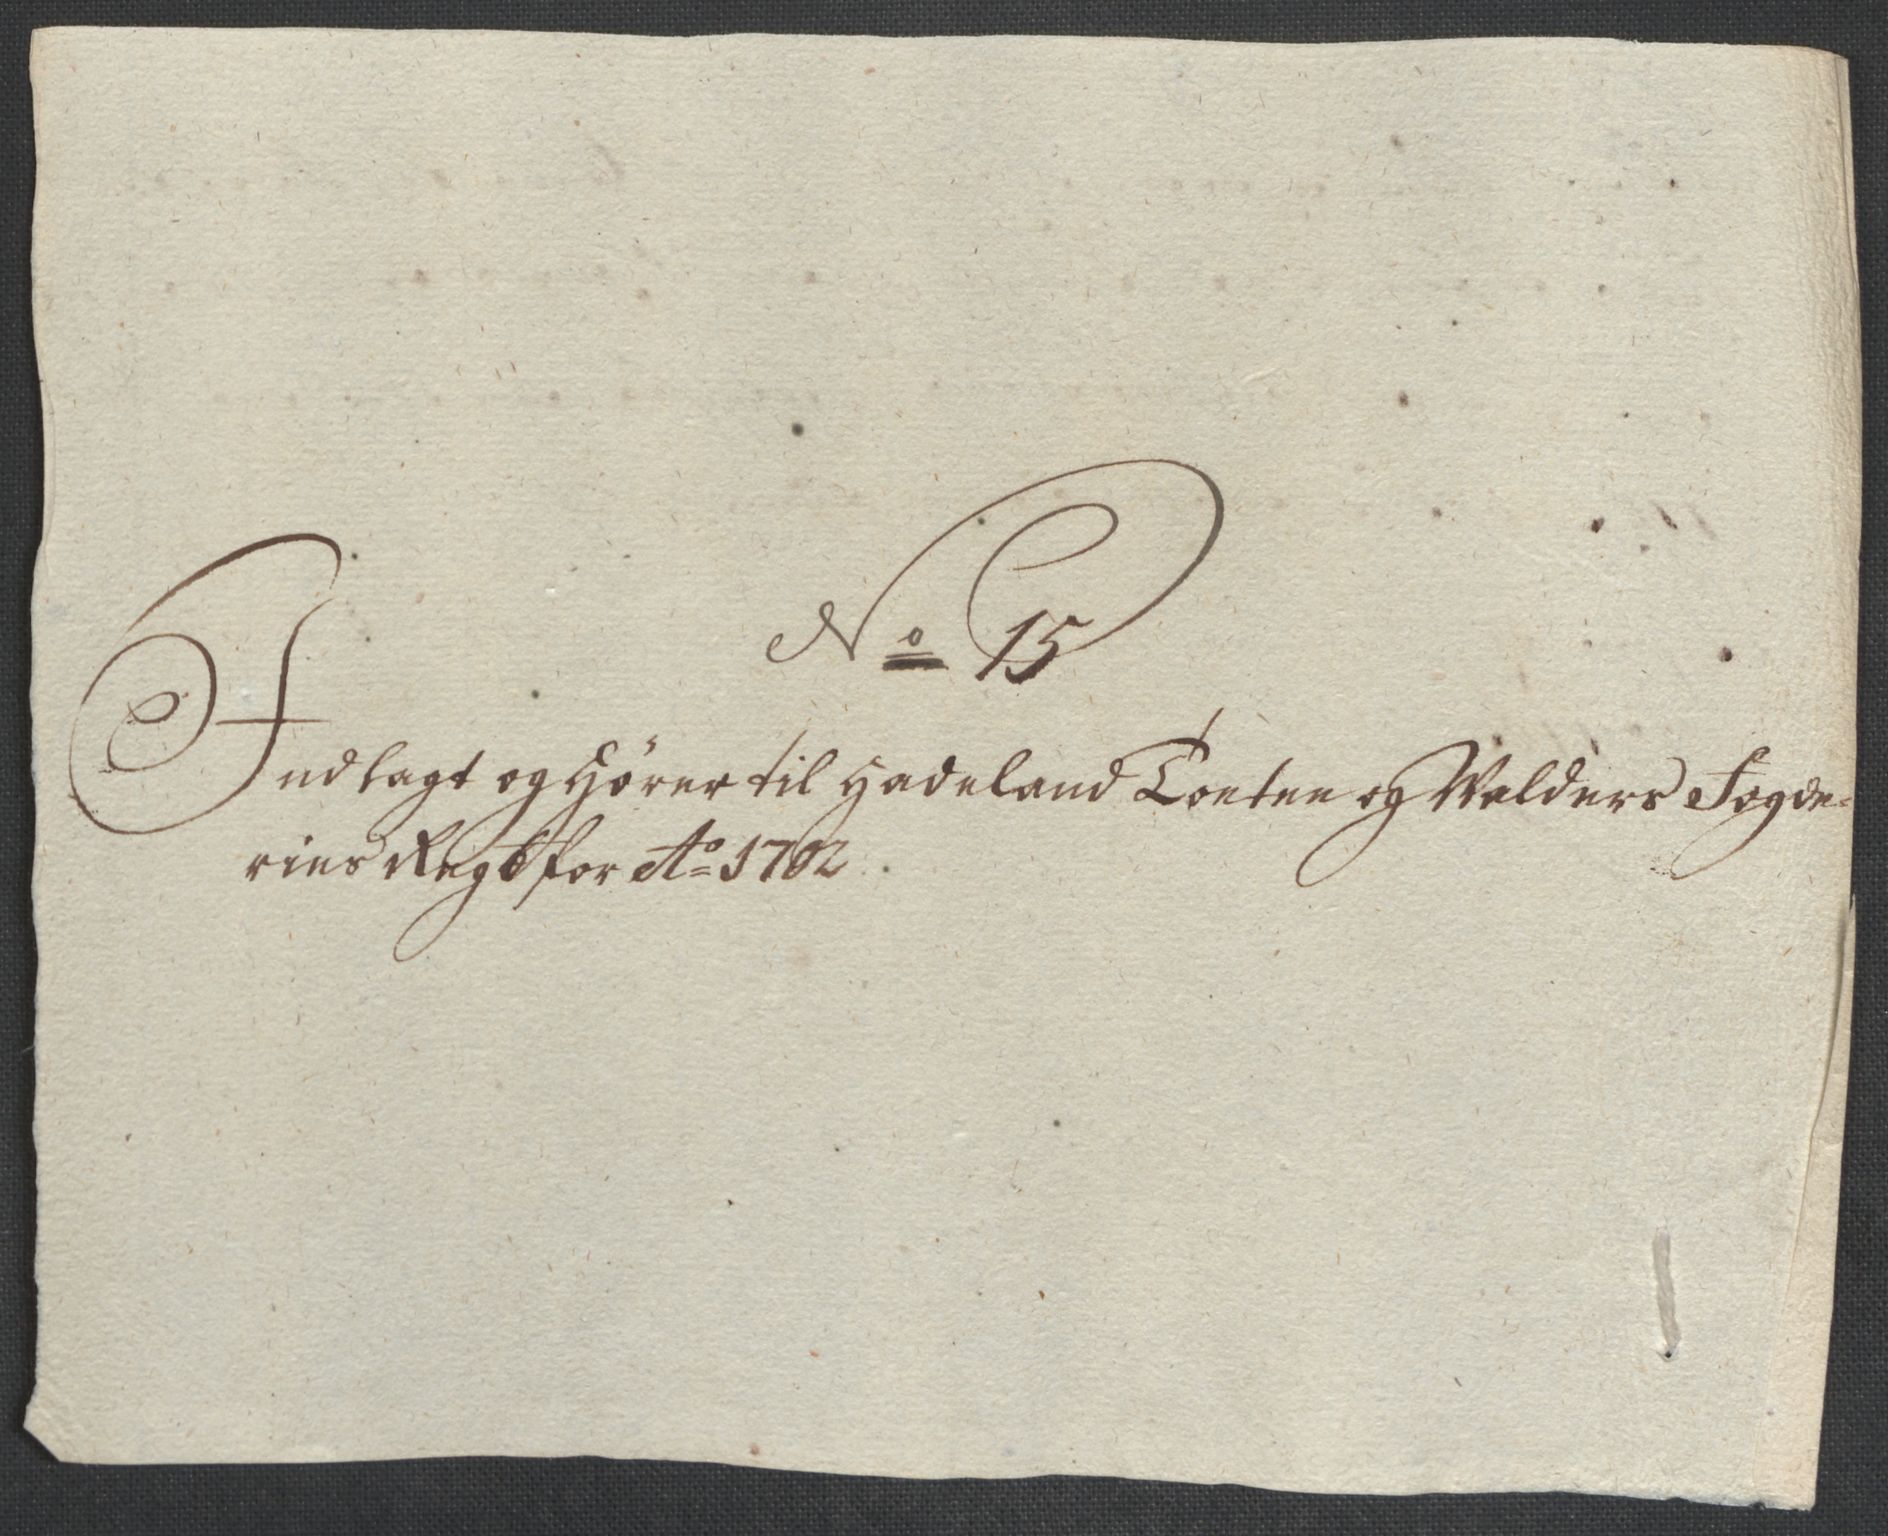 No 15
Indlagt og Hörer til Hadeland Toeten og Walders Fogde=
ries Regsk for Ao 1702